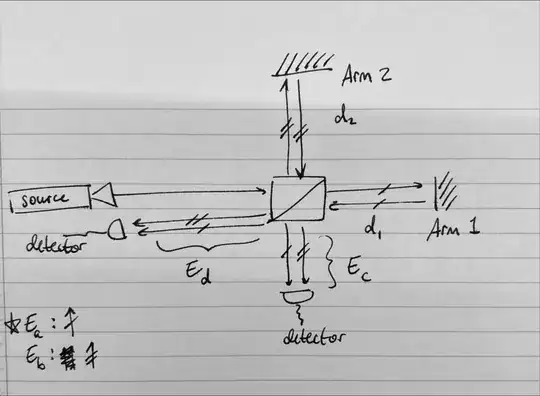 Arm 2
d₂
source
detector
d₁
Arm 1
E_d
E_c
detector
☆ E_a:
E_b: